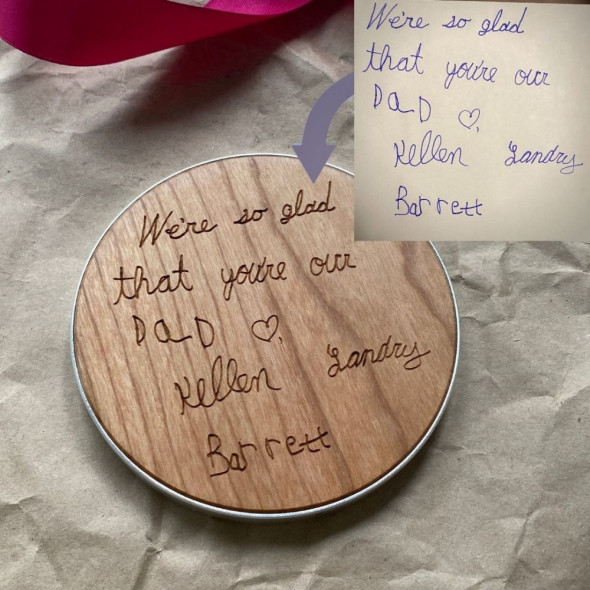 We're so glad
that you're our
DaD ♡,
Kellen Landry
Barrett
We're so glad
that you're our
DaD ♡,
Kellen Landry
Barrett